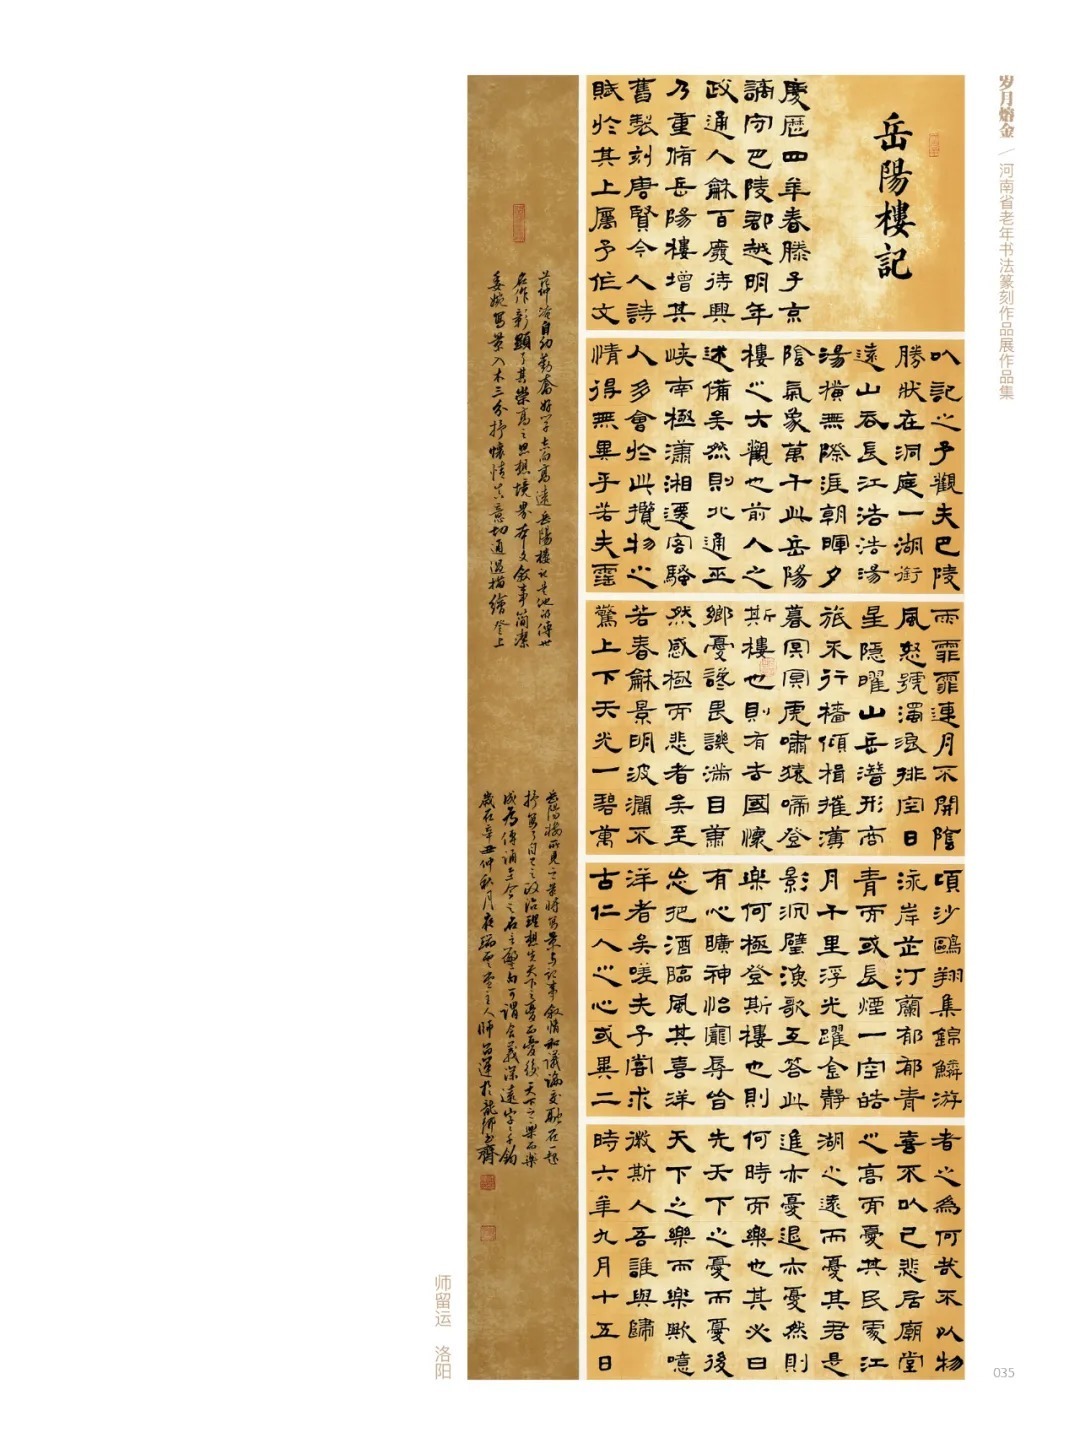 岁月熔金／河南省老年书法篆刻作品展作品集
岳陽樓記
慶歷四年春滕子京
謫守巴陵郡越明年
政通人龢百廢待興
乃重脩岳陽樓增其
舊製刻唐賢今人詩
賦於其上屬予作文
以記之予觀夫巴陵
勝狀在洞庭一湖銜
遠山吞長江浩浩湯
湯橫無際涯朝暉夕
陰氣象萬千此岳陽
樓之大觀也前人之
述備矣然則北通巫
峽南極瀟湘遷客騷
人多會於此攬物之
情得無異乎若夫霪
雨霏霏連月不開陰
風怒號濁浪排空日
星隱曜山岳潛形商
旅不行檣傾楫摧薄
暮冥冥虎嘯猿啼登
斯樓也則有去國懷
鄉憂讒畏譏滿目蕭
然感極而悲者矣至
若春龢景明波瀾不
驚上下天光一碧萬
頃沙鷗翔集錦鱗游
泳岸芷汀蘭郁郁青
青而或長煙一空皓
月千里浮光躍金靜
影沉璧漁歌互答此
樂何極登斯樓也則
有心曠神怡寵辱皆
忘把酒臨風其喜洋
洋者矣嗟夫予嘗求
古仁人之心或異二
者之為何哉不以物
喜不以己悲居廟堂
之高而憂其民處江
湖之遠而憂其君是
進亦憂退亦憂然則
何時而樂也其必曰
先天下之憂而憂後
天下之樂而樂歟噫
微斯人吾誰與歸
時六年九月十五日
范仲淹自幼勤奮好學志向高遠岳陽樓記是他的傳世
名作彰顯了其崇高之思想境界本文敘事簡潔
委婉寫景入木三分抒懷情真意切通過描繪登上
岳陽樓所見之景將寫景與記事敘情和議論交融在一起
抒寫了自己之政治理想先天下之憂而憂後天下之樂而樂
成為傳誦至今之名言警句可謂含義深遠字字千鈞
歲在辛丑仲秋月夜瑞雲堂主人師留運於龍書齋
师留运 洛阳
035